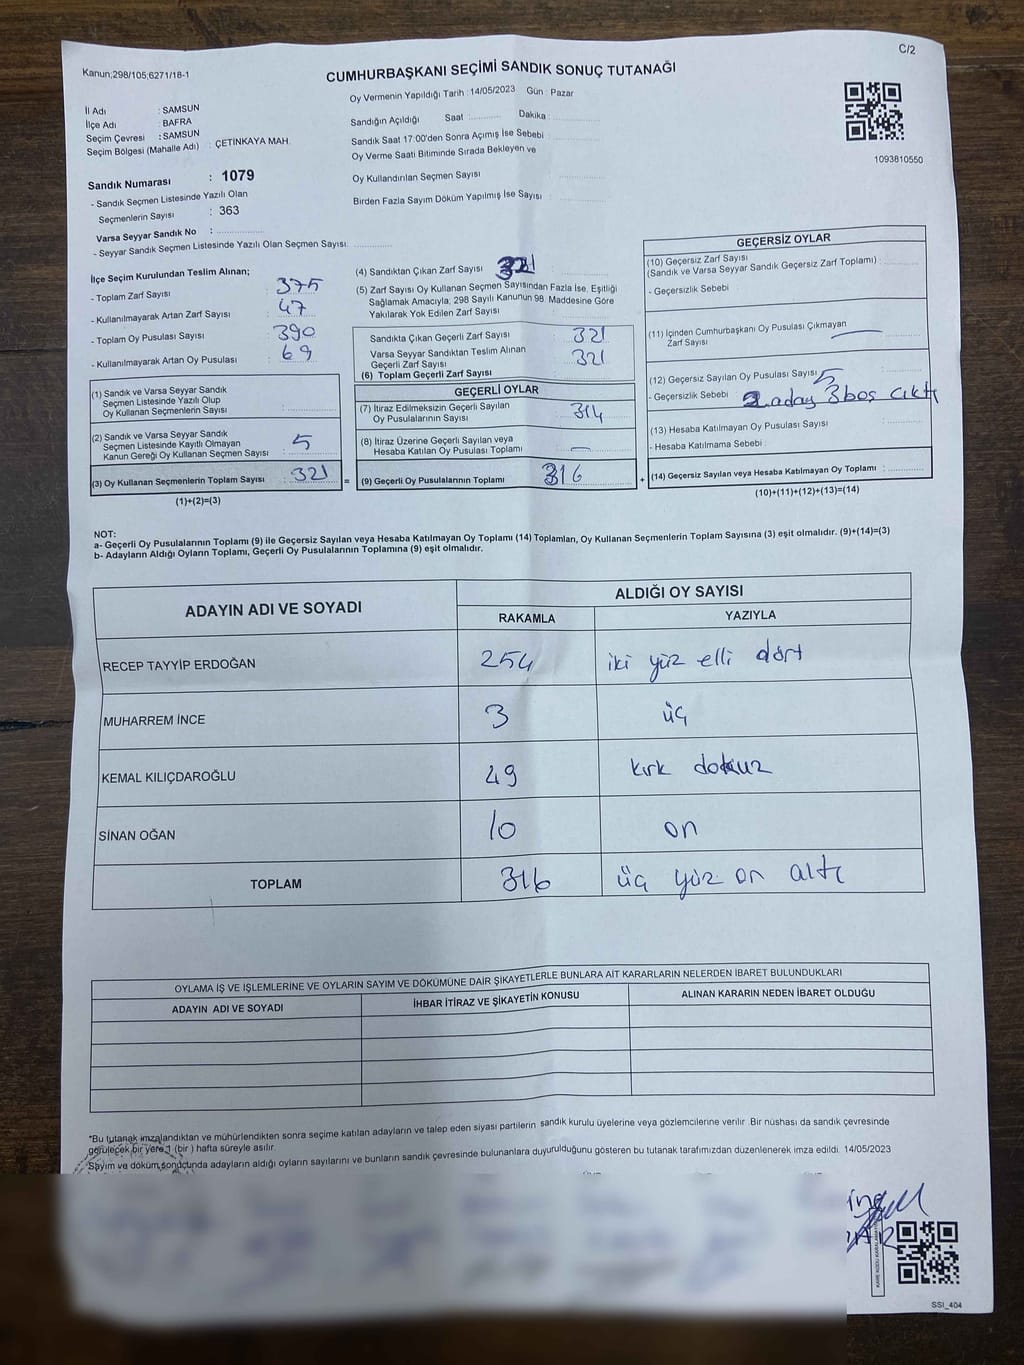 C/2
Kanun;298/105;6271/18-1
CUMHURBAŞKANI SEÇİMİ SANDIK SONUÇ TUTANAĞI
Oy Vermenin Yapıldığı Tarih : 14/05/2023 Gün : Pazar
İl Adı : SAMSUN
İlçe Adı : BAFRA
Seçim Çevresi : SAMSUN
Seçim Bölgesi (Mahalle Adı) : ÇETİNKAYA MAH.
Sandığın Açıldığı Saat ............ Dakika : ............
Sandık Saat 17:00'den Sonra Açımış İse Sebebi
Oy Verme Saati Bitiminde Sırada Bekleyen ve
Oy Kullandırılan Seçmen Sayısı
Birden Fazla Sayım Döküm Yapılmış İse Sayısı
1093810550
Sandık Numarası : 1079
- Sandık Seçmen Listesinde Yazılı Olan
Seçmenlerin Sayısı : 363
Varsa Seyyar Sandık No : ............
- Seyyar Sandık Seçmen Listesinde Yazılı Olan Seçmen Sayısı: ............
İlçe Seçim Kurulundan Teslim Alınan;
- Toplam Zarf Sayısı 375
- Kullanılmayarak Artan Zarf Sayısı 47
- Toplam Oy Pusulası Sayısı 390
- Kullanılmayarak Artan Oy Pusulası 69
(1) Sandık ve Varsa Seyyar Sandık
Seçmen Listesinde Yazılı Olup
Oy Kullanan Seçmenlerin Sayısı : ............
(2) Sandık ve Varsa Seyyar Sandık
Seçmen Listesinde Kayıtlı Olmayan
Kanun Gereği Oy Kullanan Seçmen Sayısı : 5
(3) Oy Kullanan Seçmenlerin Toplam Sayısı : 321 =
(1)+(2)=(3)
(4) Sandıktan Çıkan Zarf Sayısı 321
(5) Zarf Sayısı Oy Kullanan Seçmen Sayısından Fazla İse, Eşitliği
Sağlamak Amacıyla, 298 Sayılı Kanunun 98. Maddesine Göre
Yakılarak Yok Edilen Zarf Sayısı
Sandıkta Çıkan Geçerli Zarf Sayısı 321
Varsa Seyyar Sandıktan Teslim Alınan
Geçerli Zarf Sayısı 321
(6) Toplam Geçerli Zarf Sayısı
GEÇERLİ OYLAR
(7) İtiraz Edilmeksizin Geçerli Sayılan
Oy Pusulalarının Sayısı 314
(8) İtiraz Üzerine Geçerli Sayılan veya
Hesaba Katılan Oy Pusulası Toplamı —
(9) Geçerli Oy Pusulalarının Toplamı 316 +
GEÇERSİZ OYLAR
(10) Geçersiz Zarf Sayısı
(Sandık ve Varsa Seyyar Sandık Geçersiz Zarf Toplamı) : ............
- Geçersizlik Sebebi
(11) İçinden Cumhurbaşkanı Oy Pusulası Çıkmayan
Zarf Sayısı —
(12) Geçersiz Sayılan Oy Pusulası Sayısı 5
- Geçersizlik Sebebi 2 aday 3 boş çıktı
(13) Hesaba Katılmayan Oy Pusulası Sayısı
- Hesaba Katılmama Sebebi :
(14) Geçersiz Sayılan veya Hesaba Katılmayan Oy Toplamı : ............
(10)+(11)+(12)+(13)=(14)
NOT:
a- Geçerli Oy Pusulalarının Toplamı (9) ile Geçersiz Sayılan veya Hesaba Katılmayan Oy Toplamı (14) Toplamları, Oy Kullanan Seçmenlerin Toplam Sayısına (3) eşit olmalıdır. (9)+(14)=(3)
b- Adayların Aldığı Oyların Toplamı, Geçerli Oy Pusulalarının Toplamına (9) eşit olmalıdır.
ADAYIN ADI VE SOYADI
ALDIĞI OY SAYISI
RAKAMLA YAZIYLA
RECEP TAYYİP ERDOĞAN 254 iki yüz elli dört
MUHARREM İNCE 3 üç
KEMAL KILIÇDAROĞLU 49 kırk dokuz
SİNAN OĞAN 10 on
TOPLAM 316 üç yüz on altı
OYLAMA İŞ VE İŞLEMLERİNE VE OYLARIN SAYIM VE DÖKÜMÜNE DAİR ŞİKAYETLERLE BUNLARA AİT KARARLARIN NELERDEN İBARET BULUNDUKLARI
ADAYIN ADI VE SOYADI İHBAR İTİRAZ VE ŞİKAYETİN KONUSU ALINAN KARARIN NEDEN İBARET OLDUĞU
*Bu tutanak imzalandıktan ve mühürlendikten sonra seçime katılan adayların ve talep eden siyasi partilerin sandık kurulu üyelerine veya gözlemcilerine verilir. Bir nüshası da sandık çevresinde
görülecek bir yere 1 (bir) hafta süreyle asılır.
Sayım ve döküm sonucunda adayların aldığı oyların sayılarını ve bunların sandık çevresinde bulunanlara duyurulduğunu gösteren bu tutanak tarafımızdan düzenlenerek imza edildi. 14/05/2023
SSI_404